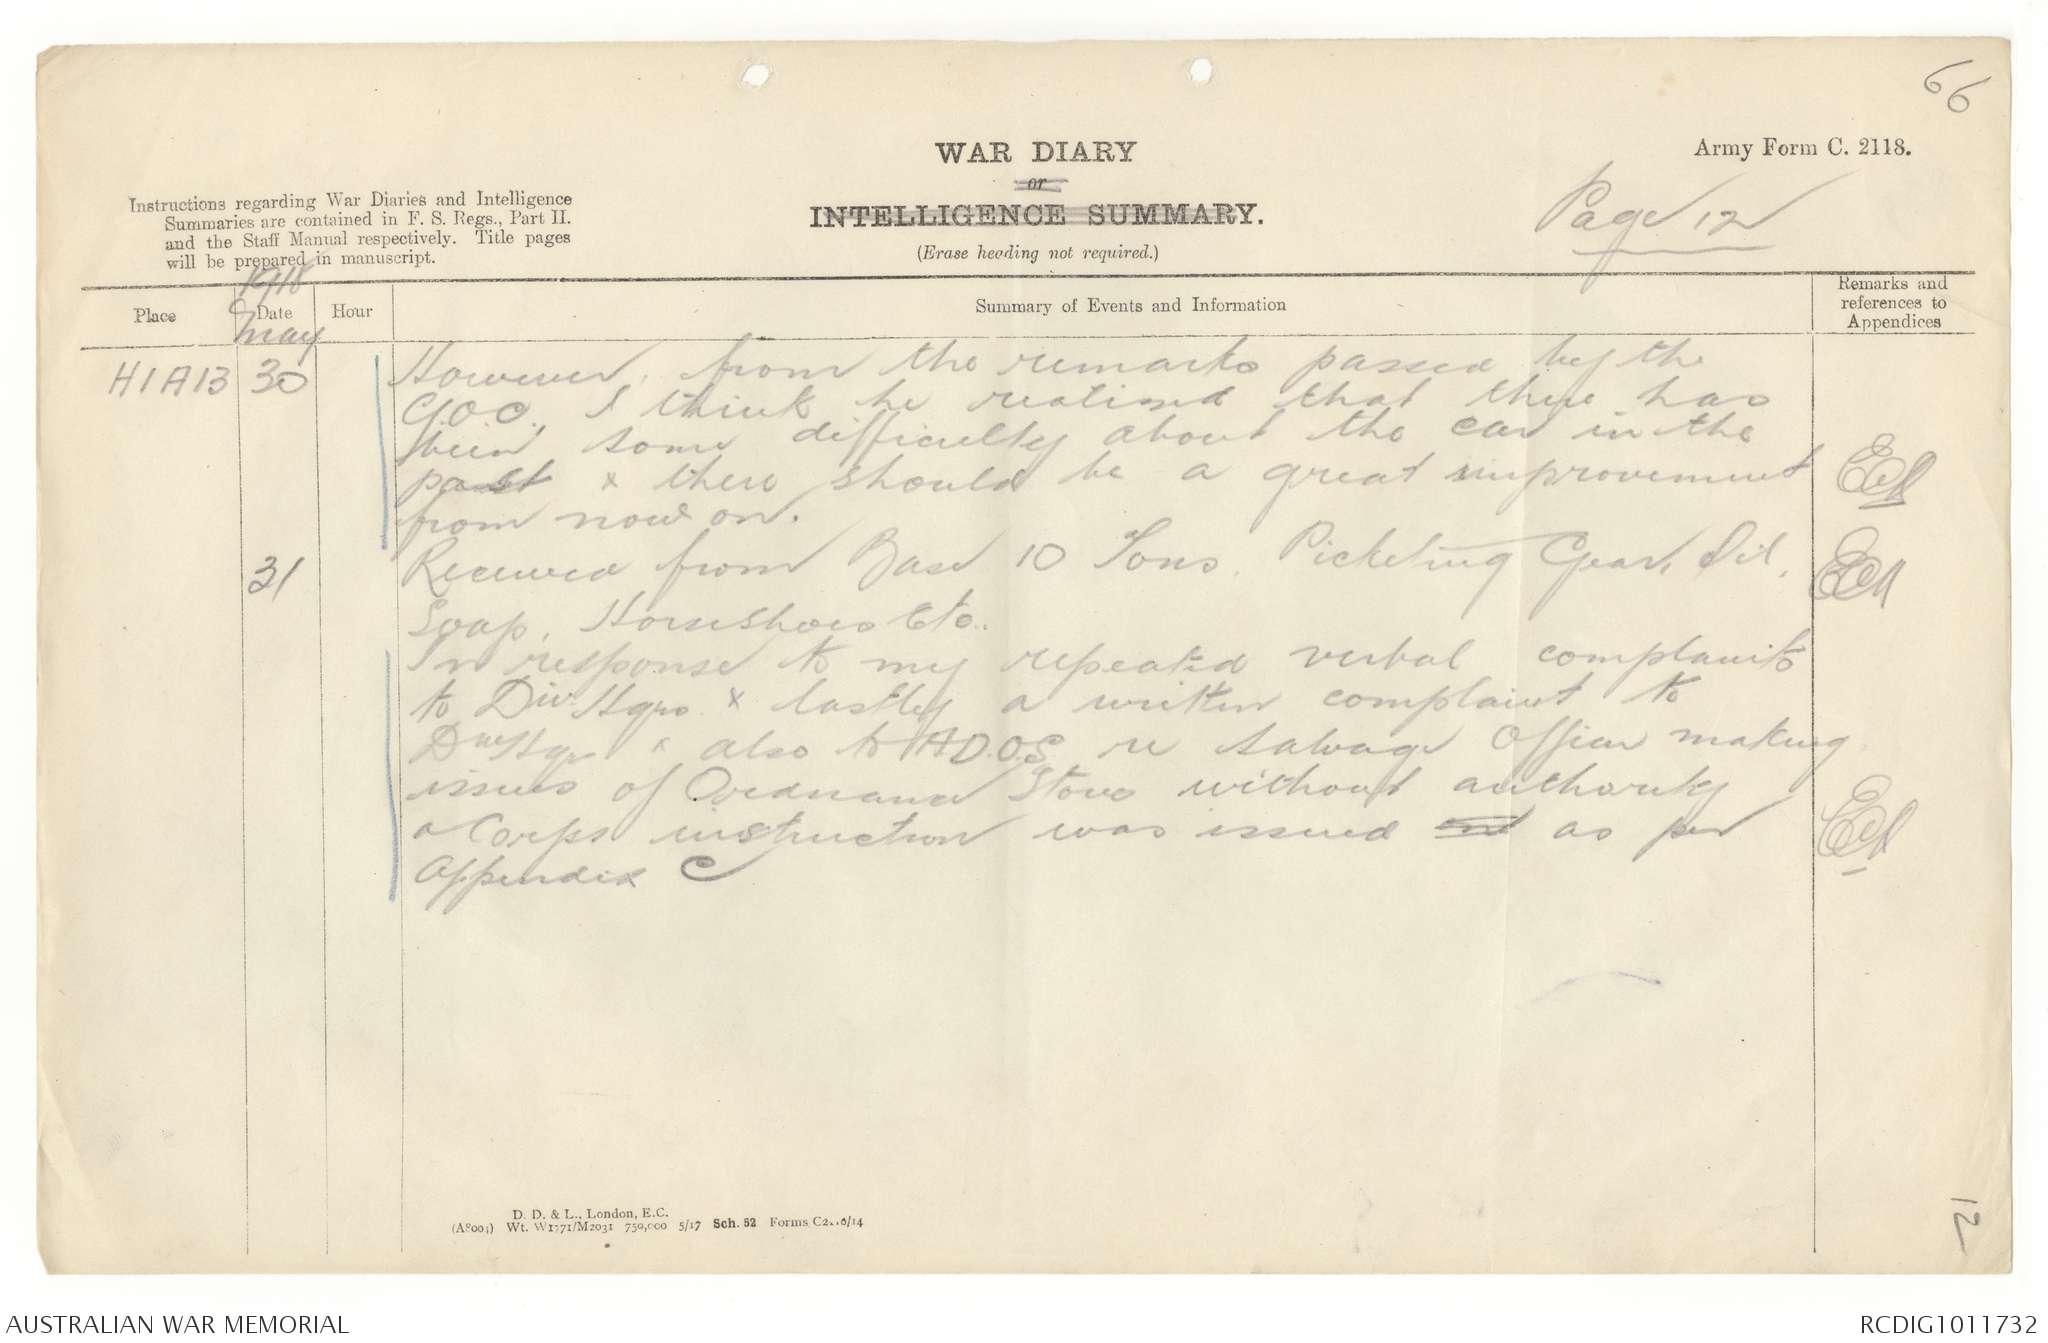 66
WAR DIARY
or
INTELLIGENCE SUMMARY.
(Erase heading not required.)
Army Form C. 2118.
Page 12
Instructions regarding War Diaries and Intelligence
Summaries are contained in F. S. Regs., Part II.
and the Staff Manual respectively. Title pages
will be prepared in manuscript.
1918
May
Place Date Hour Summary of Events and Information Remarks and
references to
Appendices
H1A13 30 However, from the remarks passed by the
G.O.C., I think he realised that there has
been some difficulty about the car in the
past & there should be a great improvement
from now on.
31 Received from Base 10 Tons, Picketing Gear, Oil,
Soap, Horseshoes Etc.
In response to my repeated verbal complaints
to Div Hqrs & lastly a written complaint to
Div Hqr & also to A.D.O.S. re Salvage Officer making
issues of Ordnance Stores without authority
a Corps instruction was issued as per
Appendix C
D. D. & L., London, E.C.
Wt. W1771/M2031 750,000 5/17 Sch. 52 Forms
12
AUSTRALIAN WAR MEMORIAL
RCDIG1011732